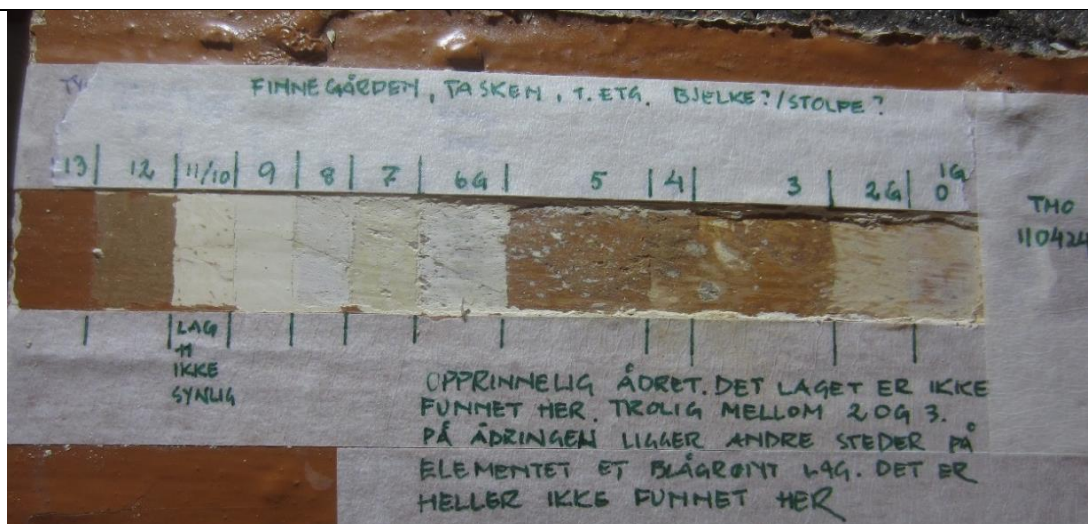 FINNEGÅRDEN, TASKEN, 1. ETG. BJELKE?/STOLPE?
13 | 12 | 11/10 | 9 | 8 | 7 | 6G | 5 | 4 | 3 | 2G | 1G
0
TMO
110424
LAG
11
IKKE
SYNLIG
OPPRINNELIG ÅDRET. DET LAGET ER IKKE
FUNNET HER. TROLIG MELLOM 2 OG 3.
PÅ ÅDRINGEN LIGGER ANDRE STEDER PÅ
ELEMENTET ET BLÅGRØNT LAG. DET ER
HELLER IKKE FUNNET HER